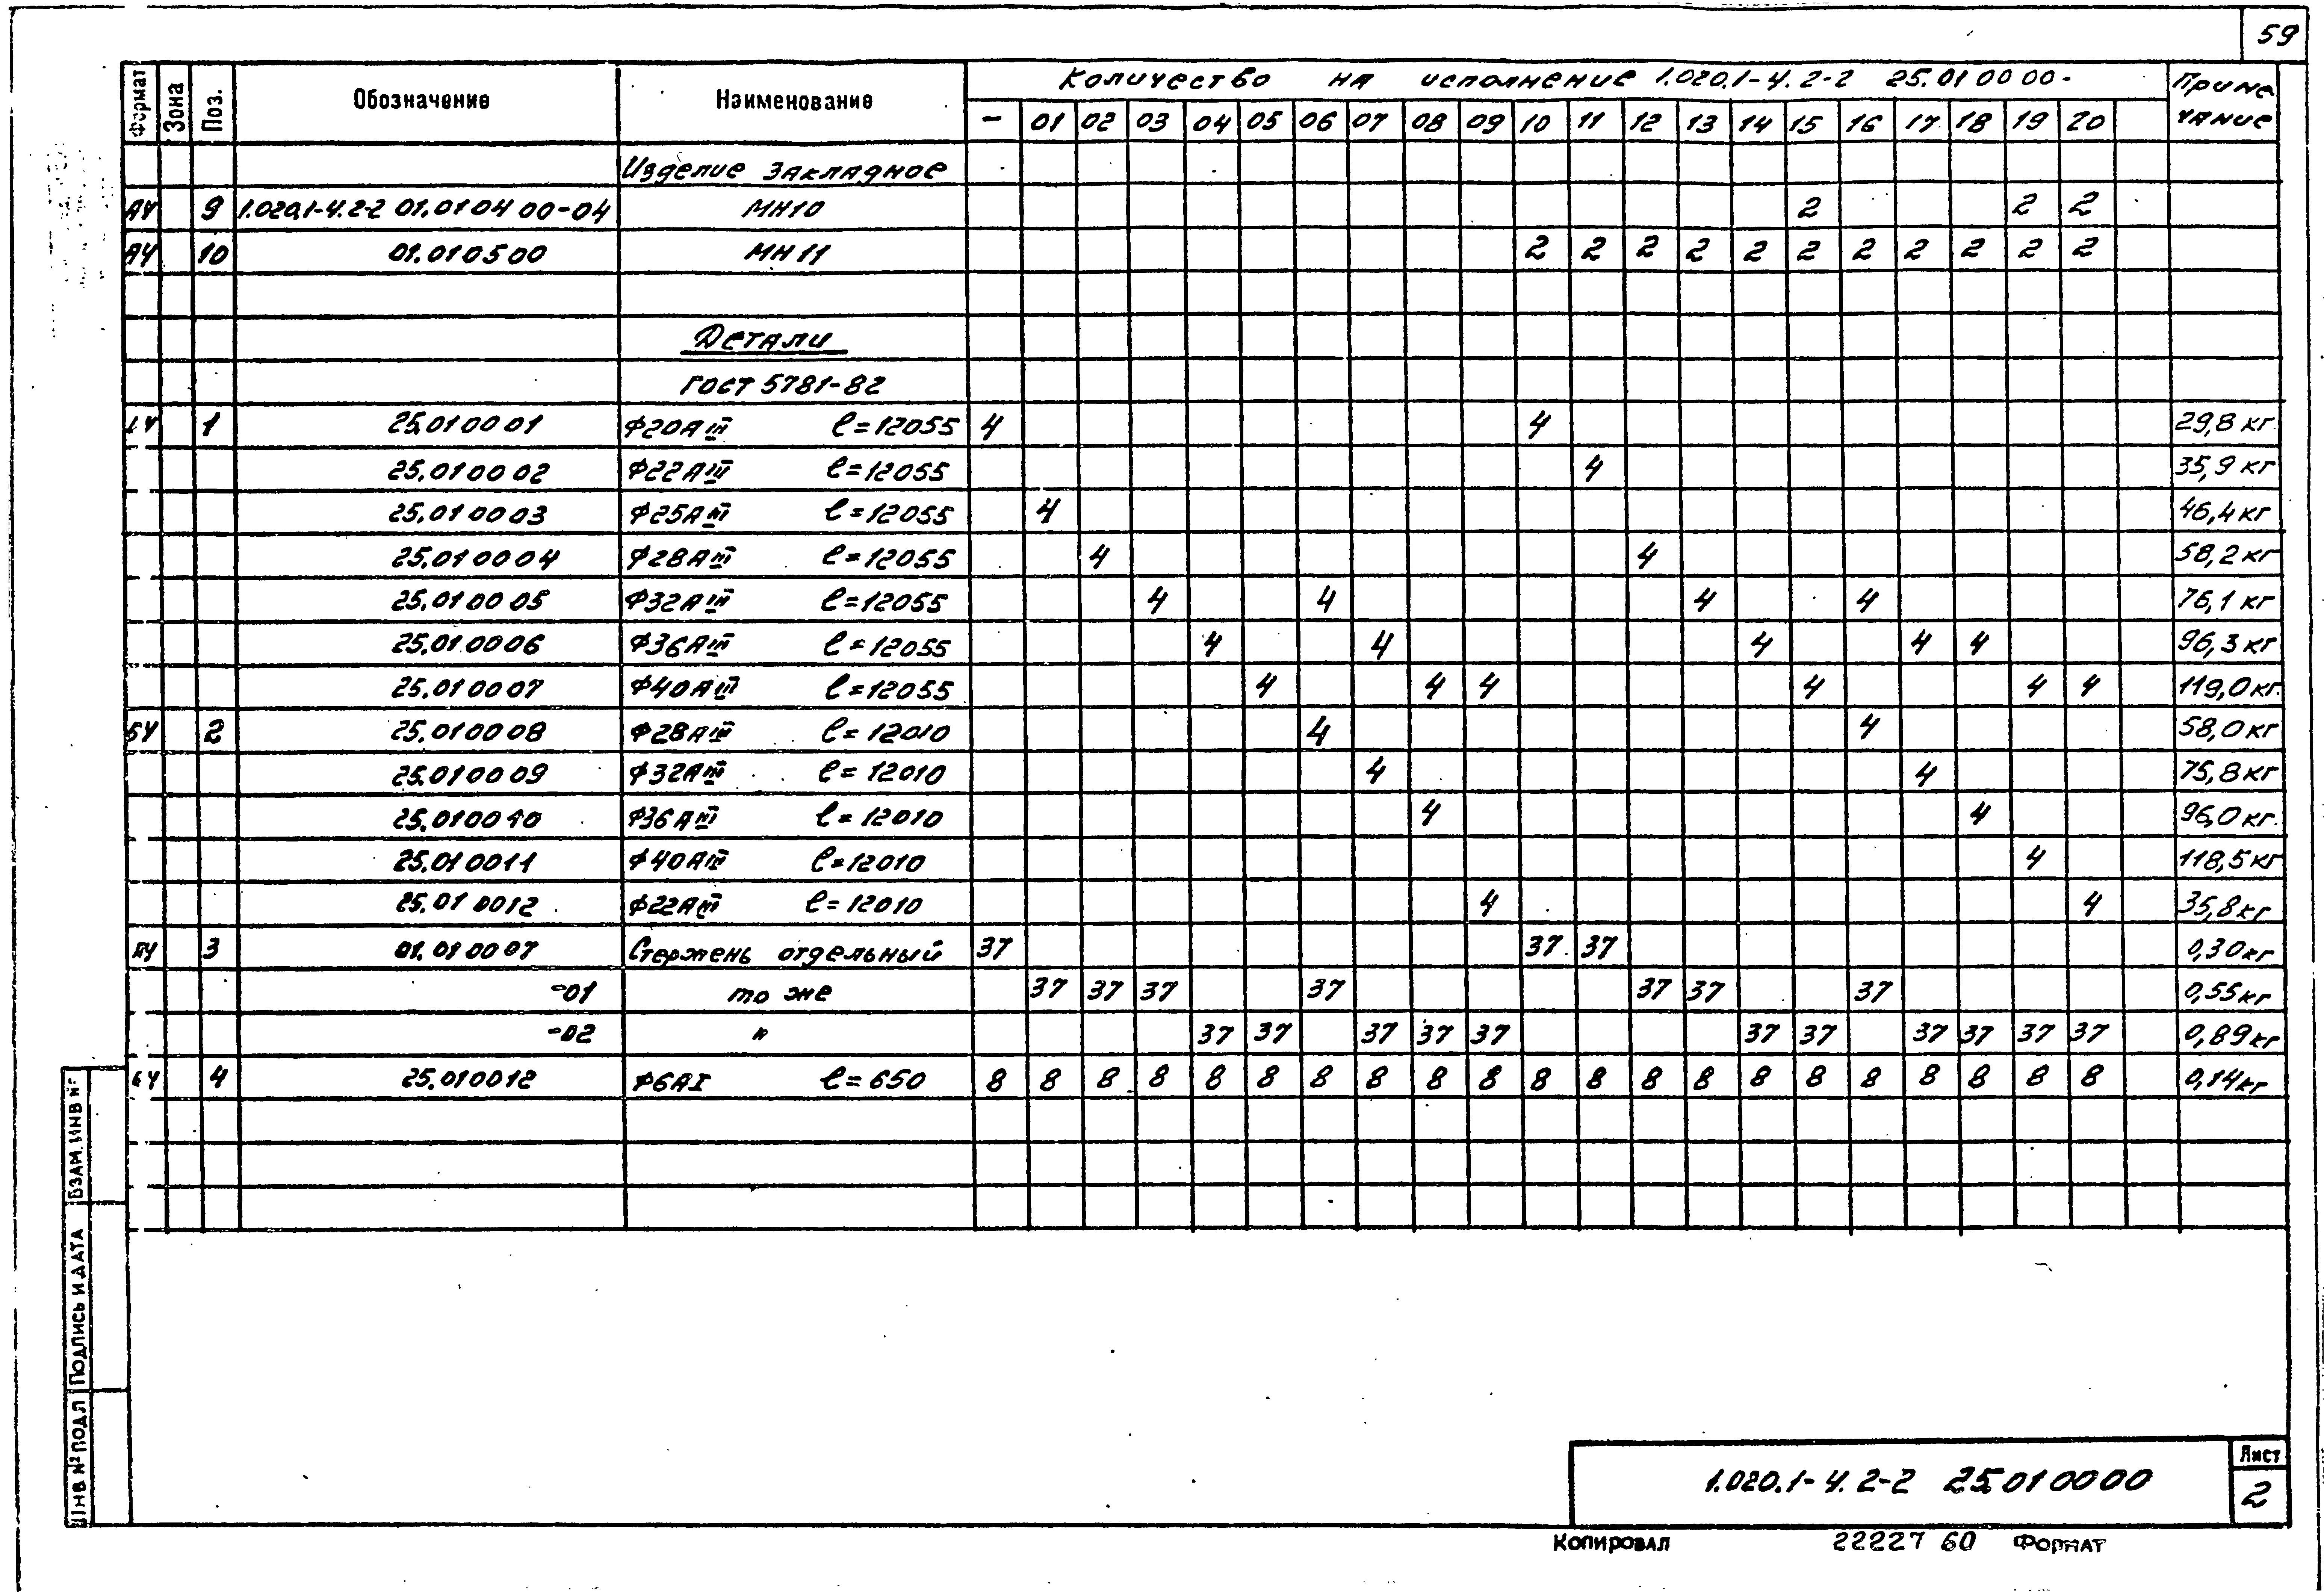 59
Формат Зона Поз. Обозначение Наименование Количество на исполнение 1.020.1-4.2-2 25.01 00 00- Примечание
- 01 02 03 04 05 06 07 08 09 10 11 12 13 14 15 16 17 18 19 20
Изделие закладное
А4 9 1.020.1-4.2-2 01.01 04 00-04 МН10 2 2 2
А4 10 01.01 05 00 МН11 2 2 2 2 2 2 2 2 2 2 2
Детали
ГОСТ 5781-82
БЧ 1 25.01 00 01 Ф20АIII ℓ=12055 4 4 29,8 кг
25.01 00 02 Ф22АIII ℓ=12055 4 35,9 кг
25.01 00 03 Ф25АIII ℓ=12055 4 46,4 кг
25.01 00 04 Ф28АIII ℓ=12055 4 4 58,2 кг
25.01 00 05 Ф32АIII ℓ=12055 4 4 4 4 76,1 кг
25.01 00 06 Ф36АIII ℓ=12055 4 4 4 4 4 96,3 кг
25.01 00 07 Ф40АIII ℓ=12055 4 4 4 4 4 4 119,0 кг.
БЧ 2 25.01 00 08 Ф28АIII ℓ=12010 4 4 58,0 кг
25.01 00 09 Ф32АIII ℓ=12010 4 4 75,8 кг
25.01 00 10 Ф36АIII ℓ=12010 4 4 96,0 кг.
25.01 00 11 Ф40АIII ℓ=12010 4 118,5 кг
25.01 00 12 Ф22АIII ℓ=12010 4 4 35,8 кг
3 01.01 00 07 Стержень отдельный 37 37 37 0,30 кг
-01 то же 37 37 37 37 37 37 37 0,55 кг
-02 " 37 37 37 37 37 37 37 37 37 37 37 0,89 кг
БЧ 4 25.01 00 12 Ф6АI ℓ=650 8 8 8 8 8 8 8 8 8 8 8 8 8 8 8 8 8 8 8 8 8 0,14 кг
ИНВ № ПОДЛ ПОДПИСЬ И ДАТА ВЗАМ. ИНВ №
1.020.1-4.2-2 25.01 00 00
Лист
2
Копировал 22227 60 Формат